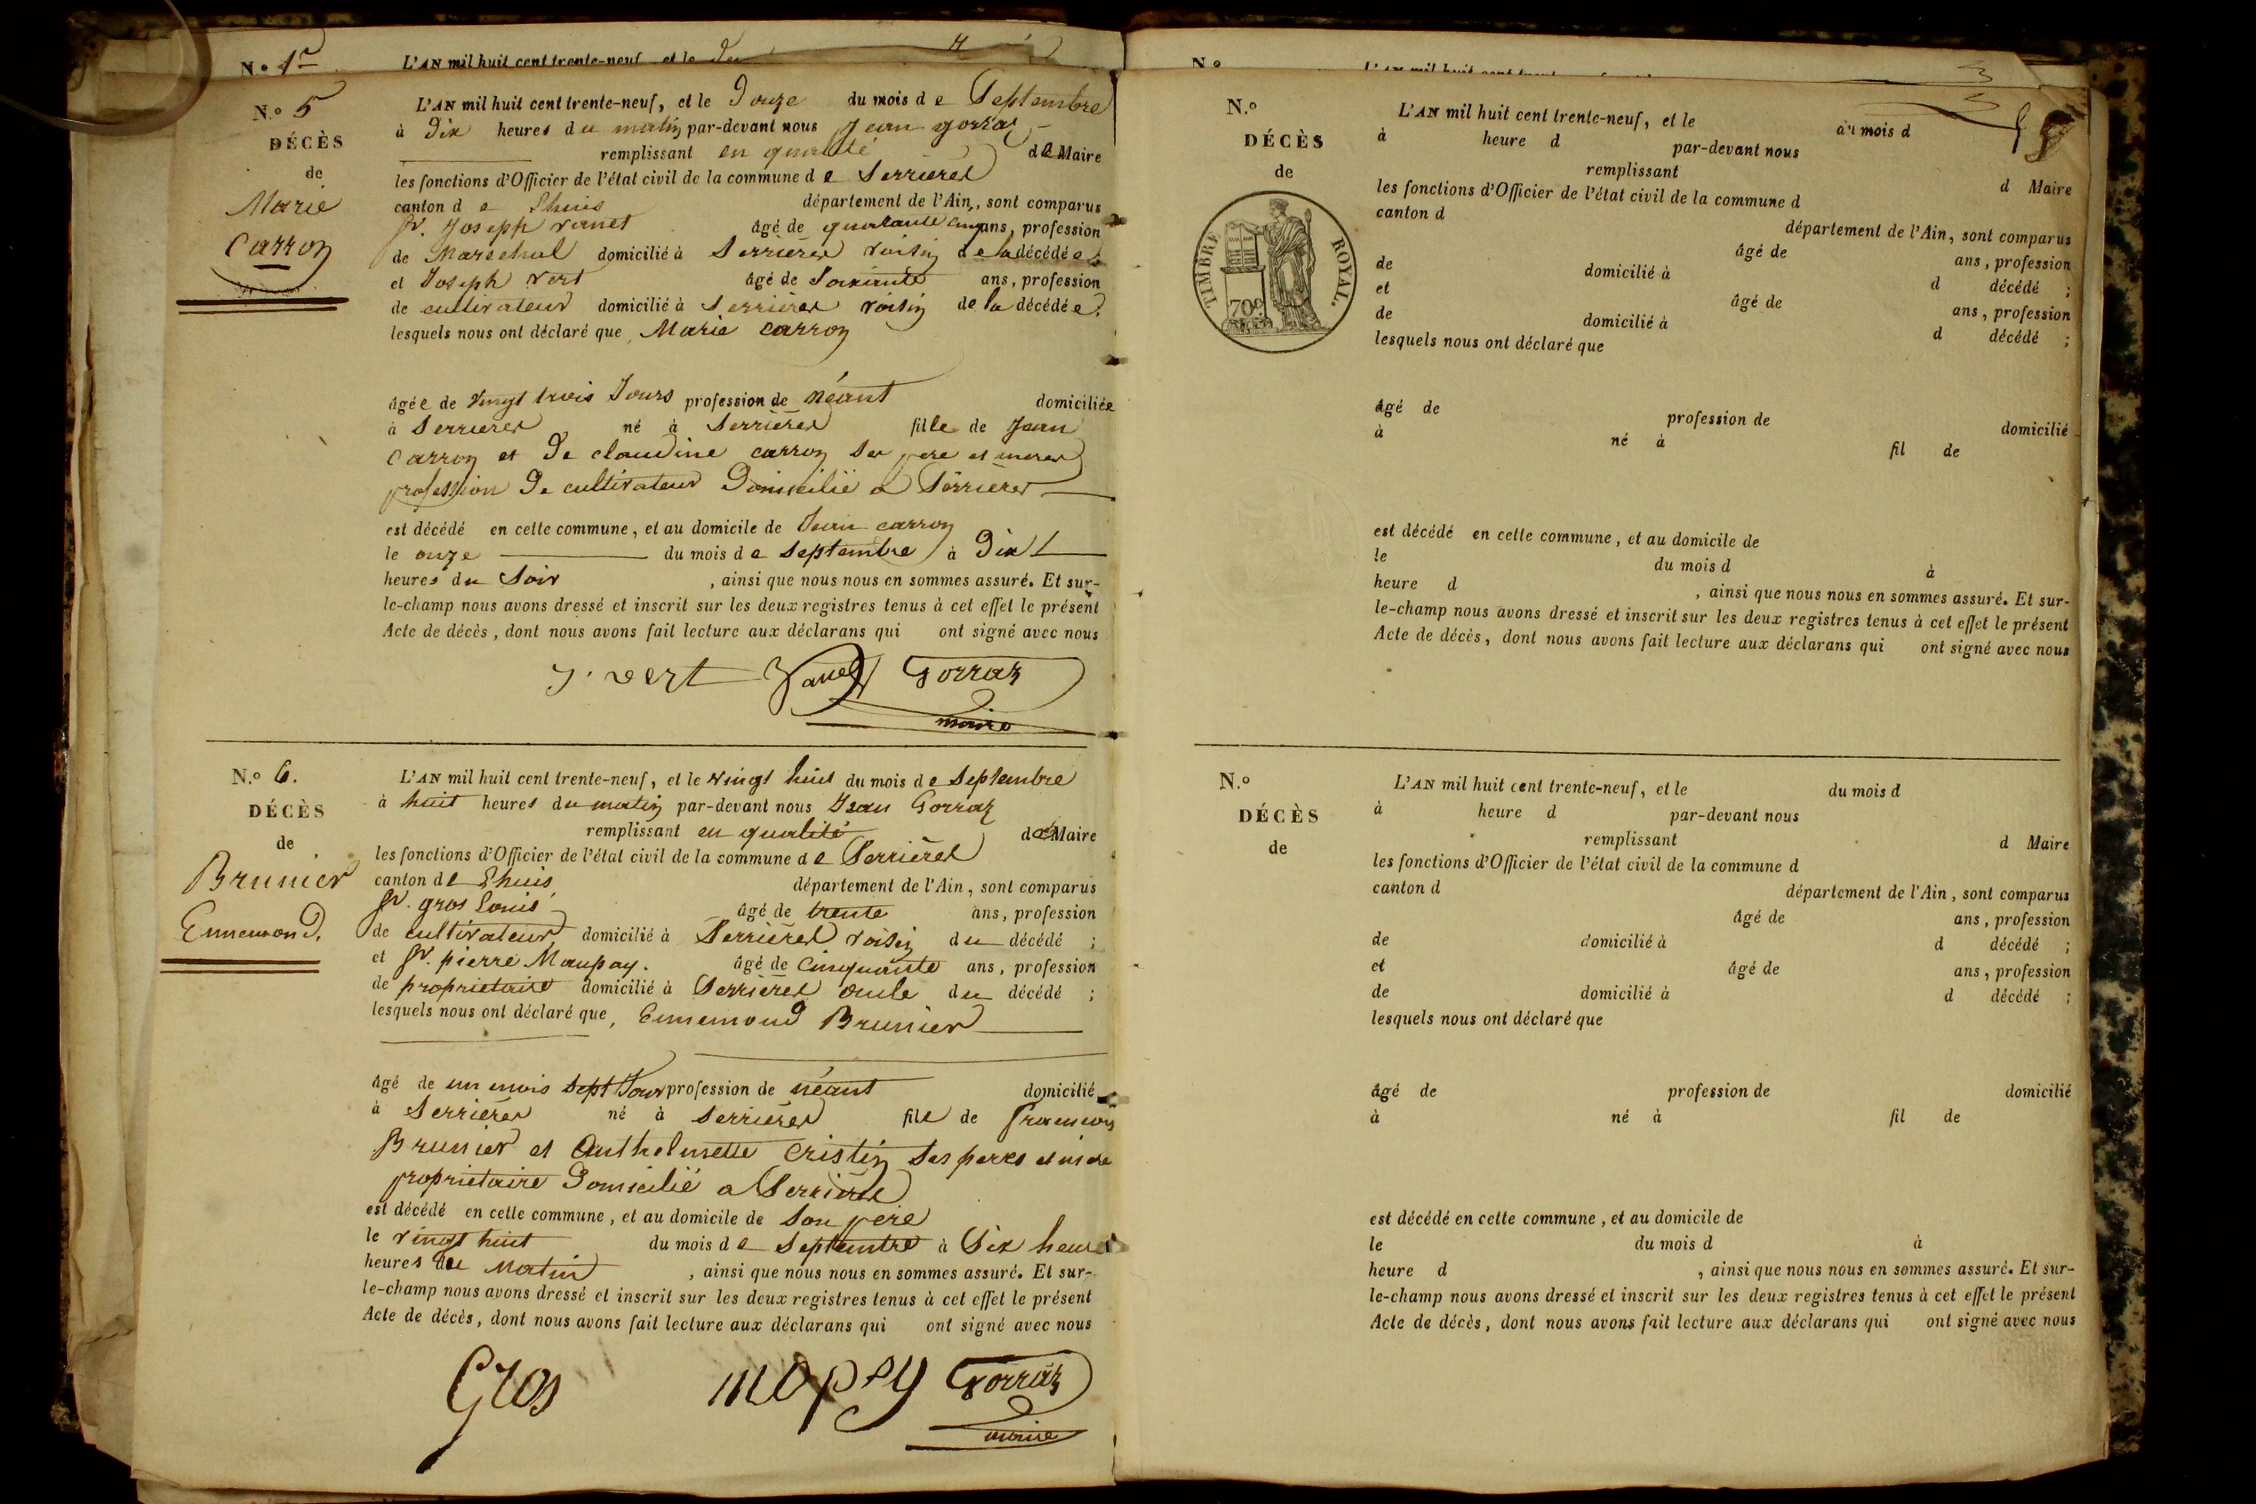 N.o 1er
L'AN mil huit cent trente-neuf, et le
N.o 5
DÉCÈS
de
Marie
Carron
L'AN mil huit cent trente-neuf, et le Douze du mois de Septembre
à Dix heures du matin par-devant nous Jean gorraz
remplissant en qualité de Maire
les fonctions d'Officier de l'état civil de la commune de Serrieres
canton de Lhuis département de l'Ain, sont comparus
Sr. Joseph vanet âgé de quarante cinq ans, profession
de Marechal domicilié à Serrieres voisin de la décédée;
et Joseph vert âgé de Soixante ans, profession
de cultivateur domicilié à Serrieres voisin de la décédée;
lesquels nous ont déclaré que, Marie carron
âgée de vingt trois Jours profession de néant domiciliée
à Serrieres né à Serrieres fille de Jean
Carron et De claudine carron Ses pere et meres
profession De cultivateur Domicilié a Serrieres
est décédé en cette commune, et au domicile de Jean carron
le onze du mois de Septembre à Dix
heures du Soir, ainsi que nous nous en sommes assuré. Et sur-
le-champ nous avons dressé et inscrit sur les deux registres tenus à cet effet le présent
Acte de décès, dont nous avons fait lecture aux déclarans qui ont signé avec nous
J. vert Vanet Gorraz
maire
N.o 6.
DÉCÈS
de
Brunier
Ennemond.
L'AN mil huit cent trente-neuf, et le vingt huit du mois de Septembre
à huit heures du matin par-devant nous Jean Gorraz
remplissant en qualité de Maire
les fonctions d'Officier de l'état civil de la commune de Serrieres
canton de Lhuis département de l'Ain, sont comparus
Sr. gros Louis âgé de trente ans, profession
de cultivateur domicilié à Serrieres voisin du décédé;
et Sr. pierre Maupay. âgé de Cinquante ans, profession
de proprietaire domicilié à Serrieres oncle du décédé;
lesquels nous ont déclaré que, Ennemond Brunier
âgé de un mois Sept Jour profession de néant domicilié
à Serrieres né à Serrieres file de francois
Brunier et Anthelmette Cristin Ses peres et mere
proprietaire Domicilié a Serrieres
est décédé en cette commune, et au domicile de Son pere
le vingt huit du mois de Septembre à Six heure
heures du Matin, ainsi que nous nous en sommes assuré. Et sur-
le-champ nous avons dressé et inscrit sur les deux registres tenus à cet effet le présent
Acte de décès, dont nous avons fait lecture aux déclarans qui ont signé avec nous
Gros mopey Gorraz
maire
N.o
N.o
DÉCÈS
de
TIMBRE ROYAL.
70c
L'AN mil huit cent trente-neuf, et le du mois d
à heure d par-devant nous
remplissant d Maire
les fonctions d'Officier de l'état civil de la commune d
canton d département de l'Ain, sont comparus
âgé de ans, profession
de domicilié à d décédé ;
et âgé de ans, profession
de domicilié à d décédé ;
lesquels nous ont déclaré que
âgé de profession de domicilié
à né à fil de
est décédé en cette commune, et au domicile de
le du mois d à
heure d , ainsi que nous nous en sommes assuré. Et sur-
le-champ nous avons dressé et inscrit sur les deux registres tenus à cet effet le présent
Acte de décès, dont nous avons fait lecture aux déclarans qui ont signé avec nous
N.o
DÉCÈS
de
L'AN mil huit cent trente-neuf, et le du mois d
à heure d par-devant nous
remplissant d Maire
les fonctions d'Officier de l'état civil de la commune d
canton d département de l'Ain, sont comparus
âgé de ans, profession
de domicilié à d décédé ;
et âgé de ans, profession
de domicilié à d décédé ;
lesquels nous ont déclaré que
âgé de profession de domicilié
à né à fil de
est décédé en cette commune, et au domicile de
le du mois d à
heure d , ainsi que nous nous en sommes assuré. Et sur-
le-champ nous avons dressé et inscrit sur les deux registres tenus à cet effet le présent
Acte de décès, dont nous avons fait lecture aux déclarans qui ont signé avec nous